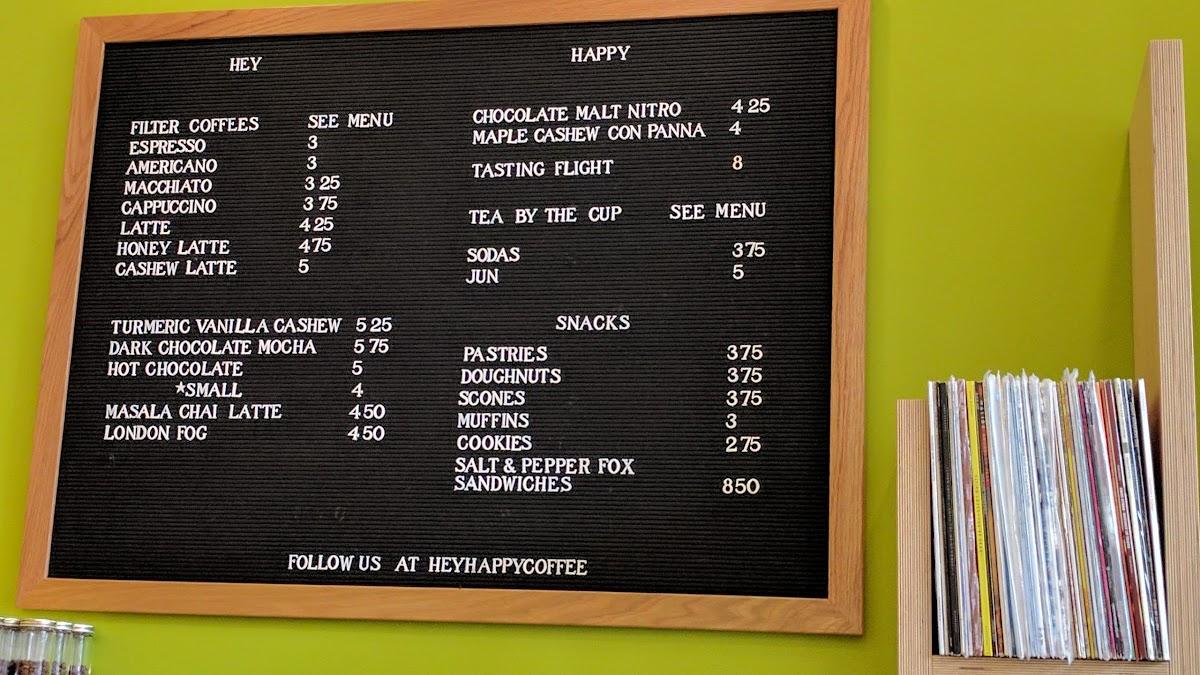 HEY
FILTER COFFEES SEE MENU
ESPRESSO 3
AMERICANO 3
MACCHIATO 3 25
CAPPUCCINO 3 75
LATTE 4 25
HONEY LATTE 4 75
CASHEW LATTE 5
TURMERIC VANILLA CASHEW 5 25
DARK CHOCOLATE MOCHA 5 75
HOT CHOCOLATE 5
*SMALL 4
MASALA CHAI LATTE 4 50
LONDON FOG 4 50
HAPPY
CHOCOLATE MALT NITRO 4 25
MAPLE CASHEW CON PANNA 4
TASTING FLIGHT 8
TEA BY THE CUP SEE MENU
SODAS 3 75
JUN 5
SNACKS
PASTRIES 3 75
DOUGHNUTS 3 75
SCONES 3 75
MUFFINS 3
COOKIES 2 75
SALT & PEPPER FOX
SANDWICHES 8 50
FOLLOW US AT HEYHAPPYCOFFEE